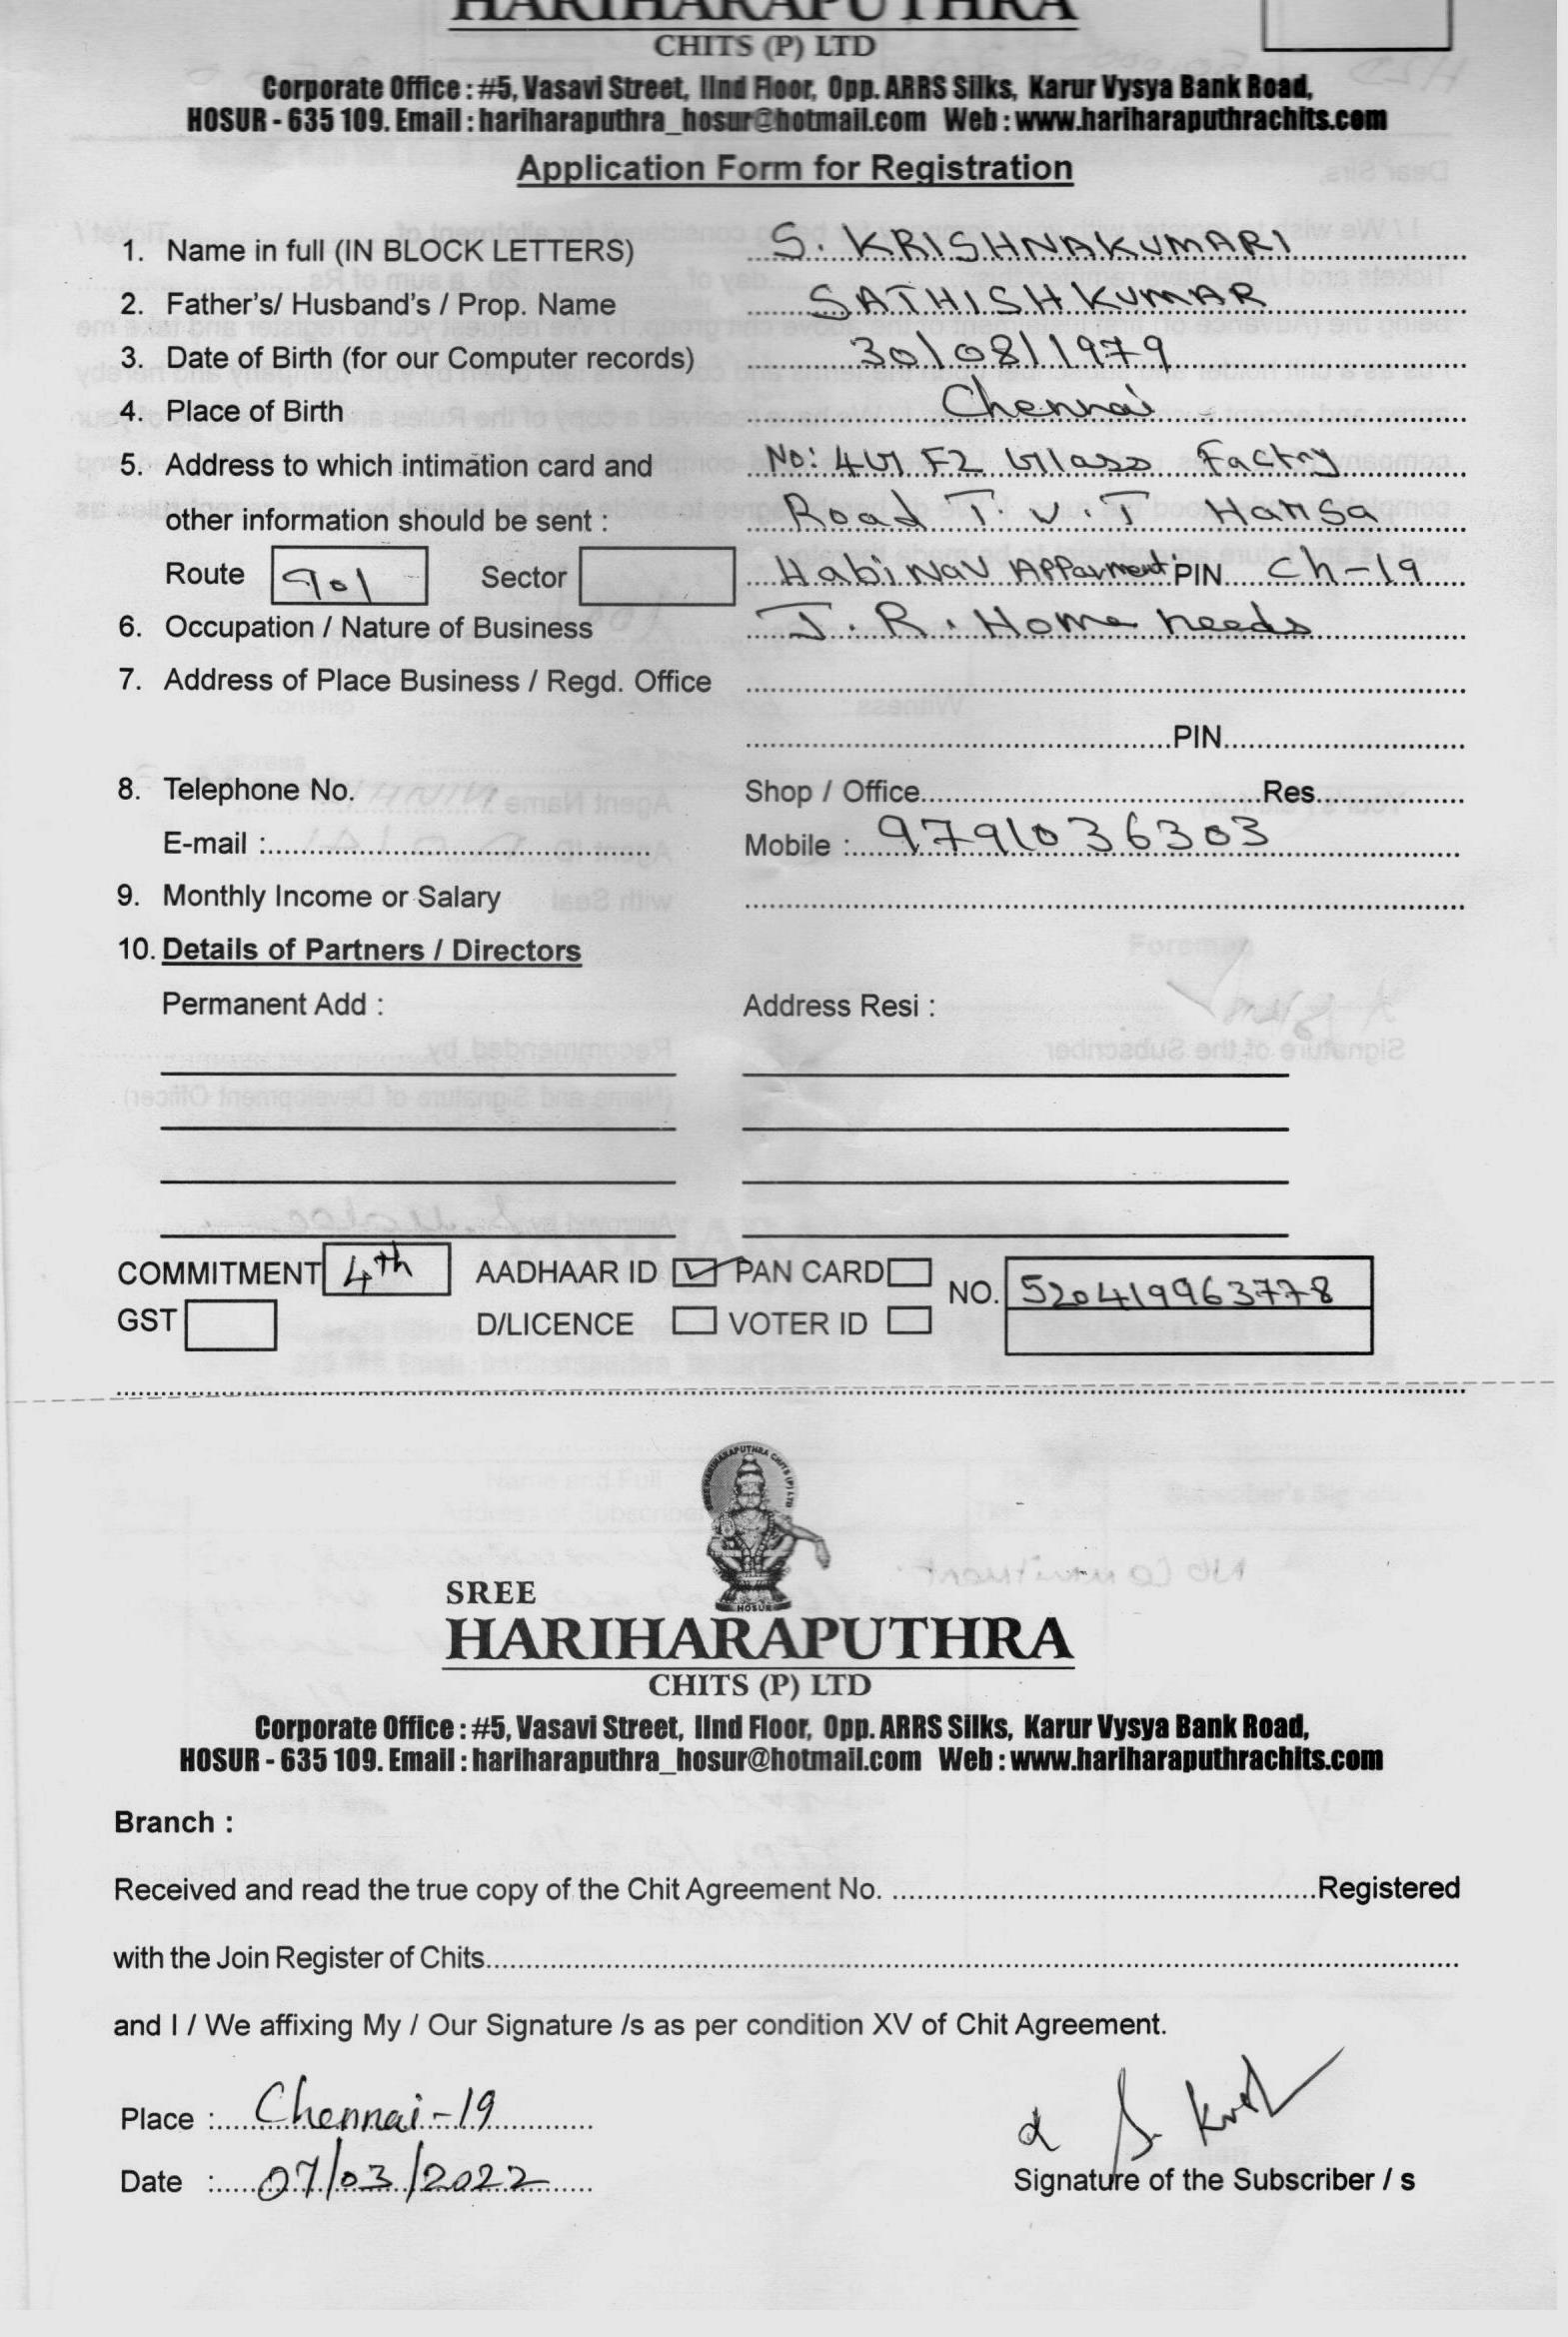 HARIHARAPUTHRA
CHITS (P) LTD
Corporate Office : #5, Vasavi Street, IInd Floor, Opp. ARRS Silks, Karur Vysya Bank Road,
HOSUR - 635 109. Email : hariharaputhra_hosur@hotmail.com Web : www.hariharaputhrachits.com
Application Form for Registration
1. Name in full (IN BLOCK LETTERS) S. KRISHNAKUMARI
2. Father's/ Husband's / Prop. Name SATHISH KUMAR
3. Date of Birth (for our Computer records) 30/08/1979
4. Place of Birth Chennai
5. Address to which intimation card and No: 4G1 F2 Glass Factry
other information should be sent : Road T. V. T Hansa
Route 901 Sector Habinav Apparment PIN Ch-19
6. Occupation / Nature of Business J. R. Home needs
7. Address of Place Business / Regd. Office
PIN
8. Telephone No. Shop / Office Res.
E-mail : Mobile : 9791036303
9. Monthly Income or Salary
10. Details of Partners / Directors
Permanent Add : Address Resi :
COMMITMENT 4th AADHAAR ID PAN CARD NO. 520419963778
GST D/LICENCE VOTER ID
SREE HARIHARAPUTHRA CHITS (P) LTD
HOSUR
SREE
HARIHARAPUTHRA
CHITS (P) LTD
Corporate Office : #5, Vasavi Street, IInd Floor, Opp. ARRS Silks, Karur Vysya Bank Road,
HOSUR - 635 109. Email : hariharaputhra_hosur@hotmail.com Web : www.hariharaputhrachits.com
Branch :
Received and read the true copy of the Chit Agreement No. Registered
with the Join Register of Chits
and I / We affixing My / Our Signature /s as per condition XV of Chit Agreement.
Place : Chennai-19
Date : 07/03/2022
Signature of the Subscriber / s